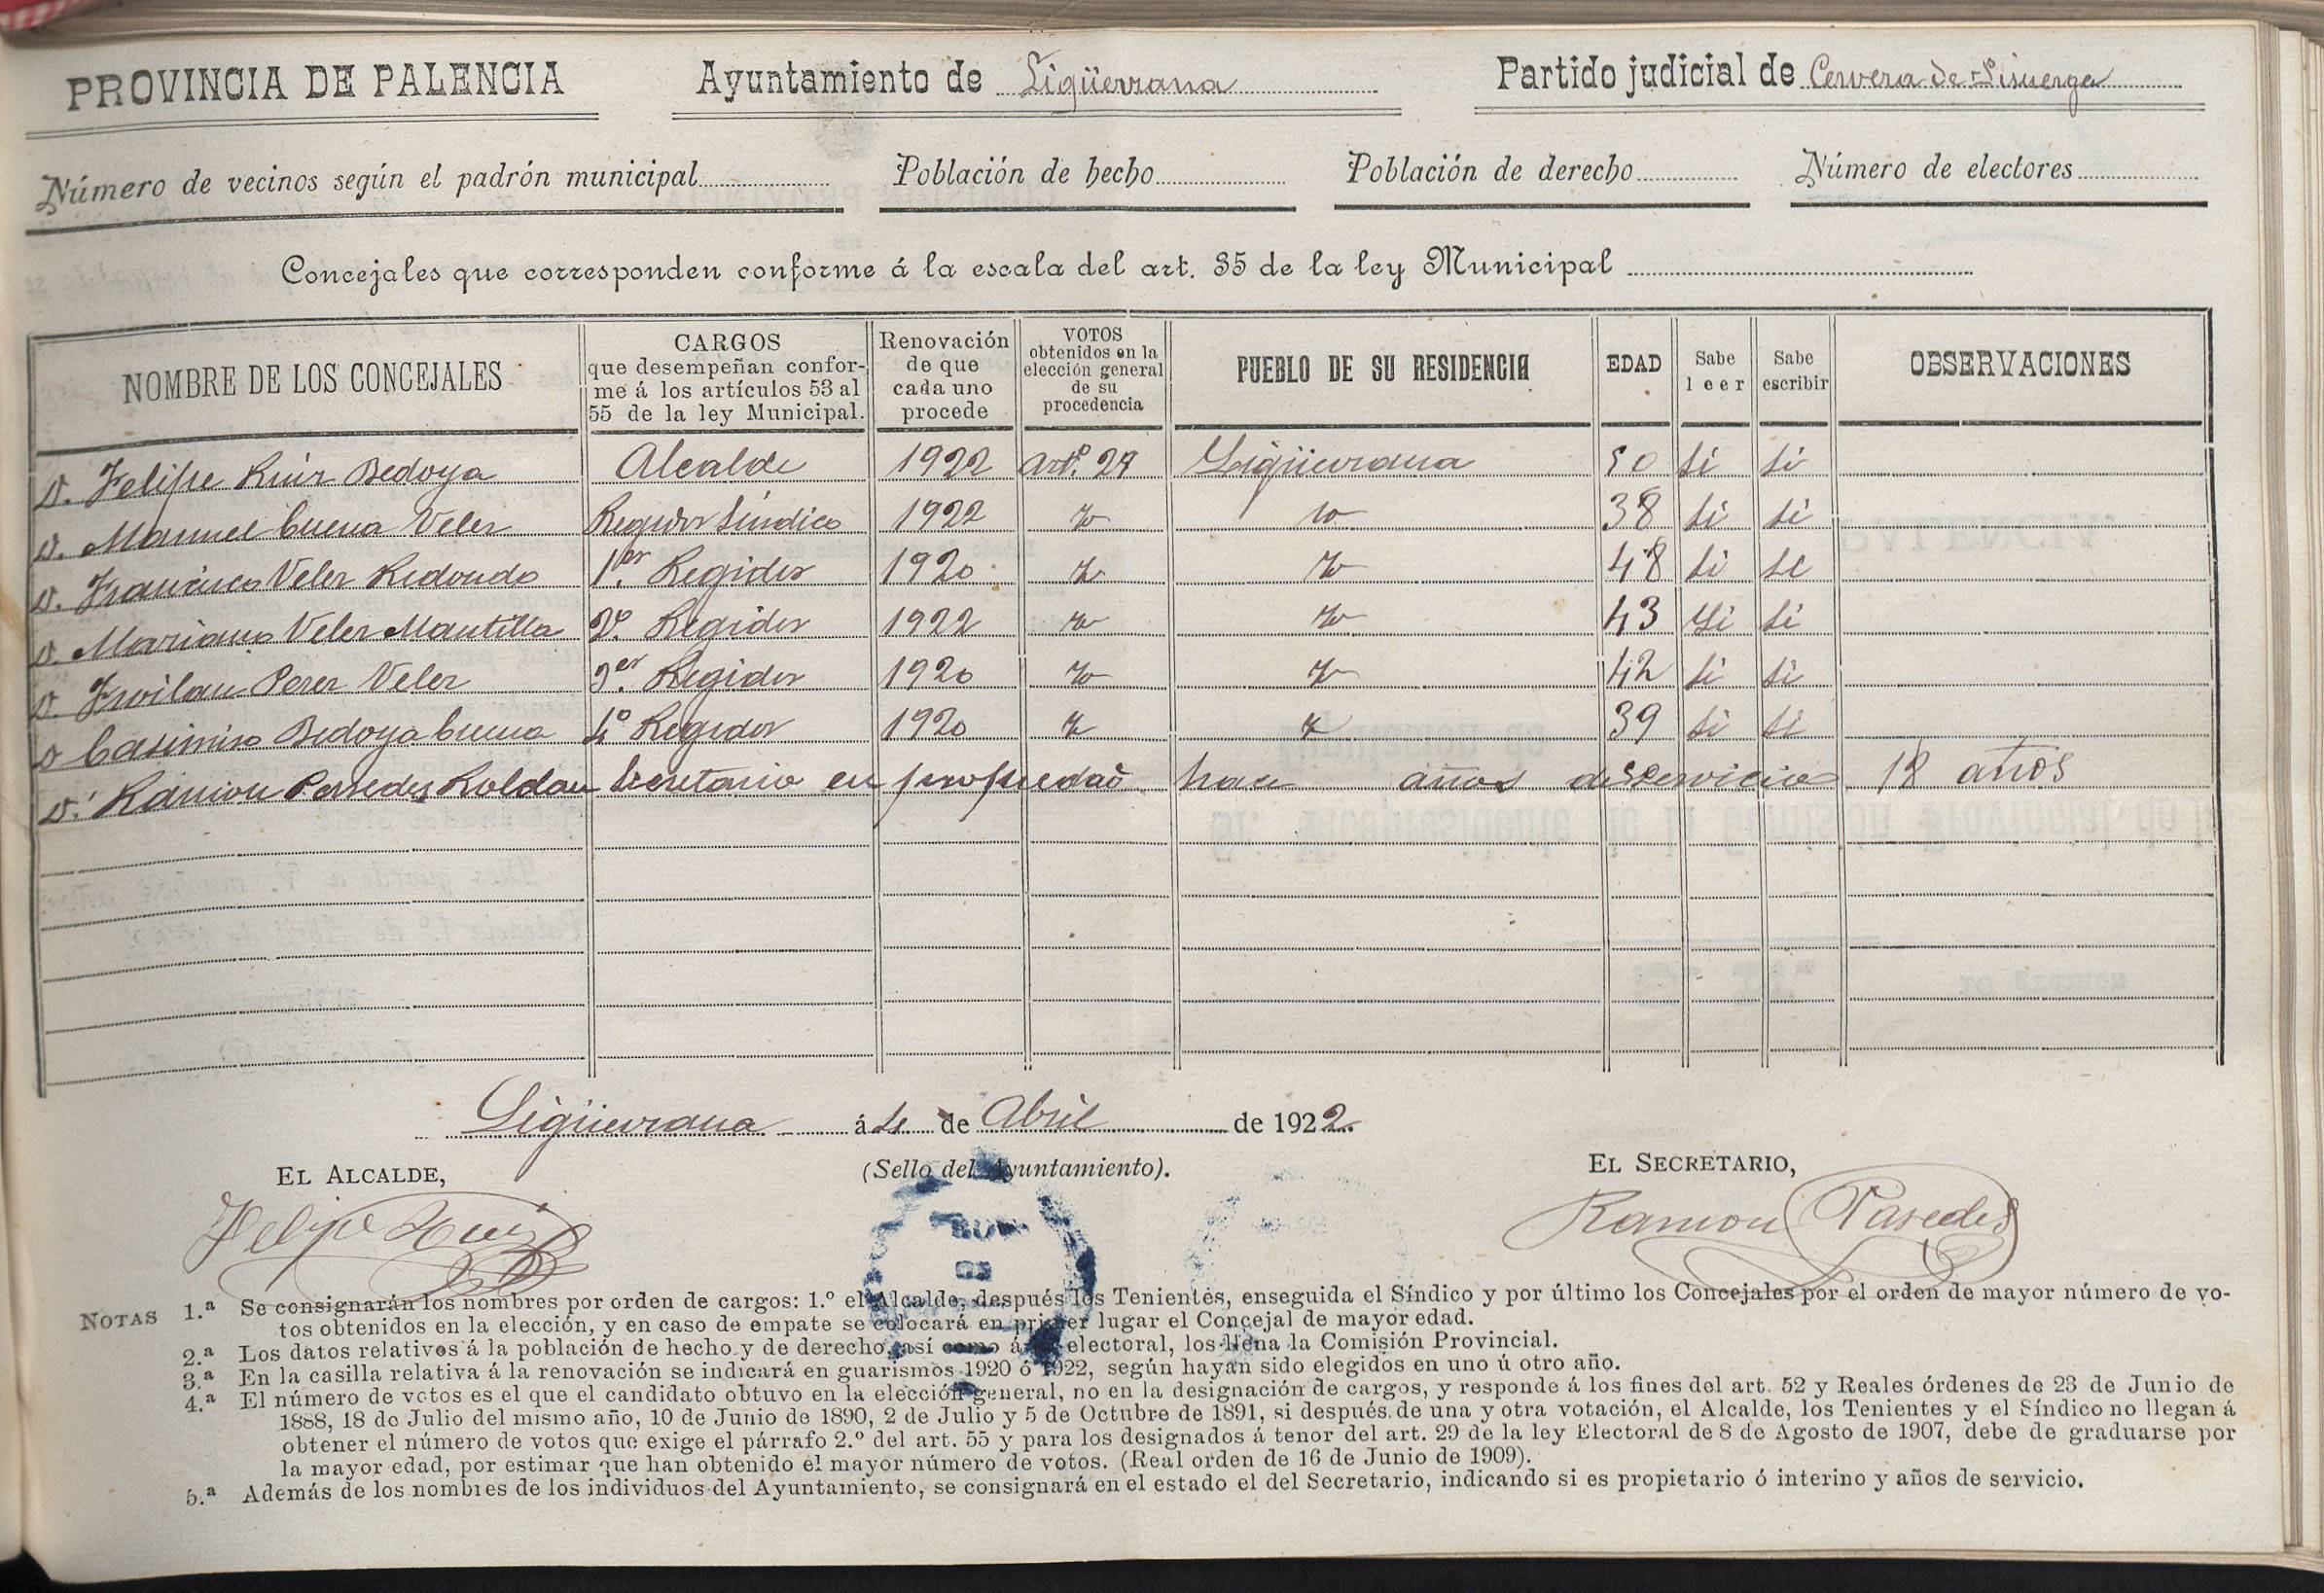 PROVINCIA DE PALENCIA Ayuntamiento de Ligüerzana Partido judicial de Cervera de Pisuerga
Número de vecinos según el padrón municipal Población de hecho Población de derecho Número de electores
Concejales que corresponden conforme á la escala del art. 35 de la ley Municipal
NOMBRE DE LOS CONCEJALES
CARGOS
que desempeñan confor-
me á los artículos 53 al
55 de la ley Municipal.
Renovación
de que
cada uno
procede
VOTOS
obtenidos en la
elección general
de su
procedencia
PUEBLO DE SU RESIDENCIA
EDAD
Sabe
leer
Sabe
escribir
OBSERVACIONES
D. Felipe Ruiz Bedoya Alcalde 1922 Artº. 29 Ligüerzana 50 si si
D. Manuel Cuena Velez Regidor Síndico 1922 38 si si
D. Francisco Velez Redondo 1er. Regidor 1920 48 si si
D. Mariano Velez Mantilla 2º. Regidor 1922 43 si si
D. Froilan Perez Velez 3er. Regidor 1920 42 si si
D Casimiro Bedoya Cuena 4º Regidor 1920 39 si si
D. Ramion Paredes Roldan Secretario en propiedad hace años de servicio 18 años
Ligüerzana á 4 de Abril de 1922.
EL ALCALDE, (Sello del Ayuntamiento). EL SECRETARIO,
Felipe Ruiz Ramon Paredes
NOTAS 1.ª Se consignarán los nombres por orden de cargos: 1.º el Alcalde, después los Tenientes, enseguida el Síndico y por último los Concejales por el orden de mayor número de vo-
tos obtenidos en la elección, y en caso de empate se colocará en primer lugar el Concejal de mayor edad.
2.ª Los datos relativos á la población de hecho y de derecho, así como á electoral, los llena la Comisión Provincial.
3.ª En la casilla relativa á la renovación se indicará en guarismos 1920 ó 1922, según hayan sido elegidos en uno ú otro año.
4.ª El número de votos es el que el candidato obtuvo en la elección general, no en la designación de cargos, y responde á los fines del art. 52 y Reales órdenes de 23 de Junio de
1888, 18 de Julio del mismo año, 10 de Junio de 1890, 2 de Julio y 5 de Octubre de 1891, si después de una y otra votación, el Alcalde, los Tenientes y el Síndico no llegan á
obtener el número de votos que exige el párrafo 2.º del art. 55 y para los designados á tenor del art. 29 de la ley Electoral de 8 de Agosto de 1907, debe de graduarse por
la mayor edad, por estimar que han obtenido el mayor número de votos. (Real orden de 16 de Junio de 1909).
5.ª Además de los nombres de los individuos del Ayuntamiento, se consignará en el estado el del Secretario, indicando si es propietario ó interino y años de servicio.